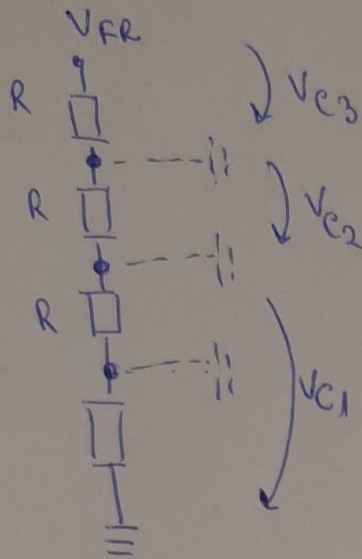 VFR
R
VC3
R
VC2
R
VC1